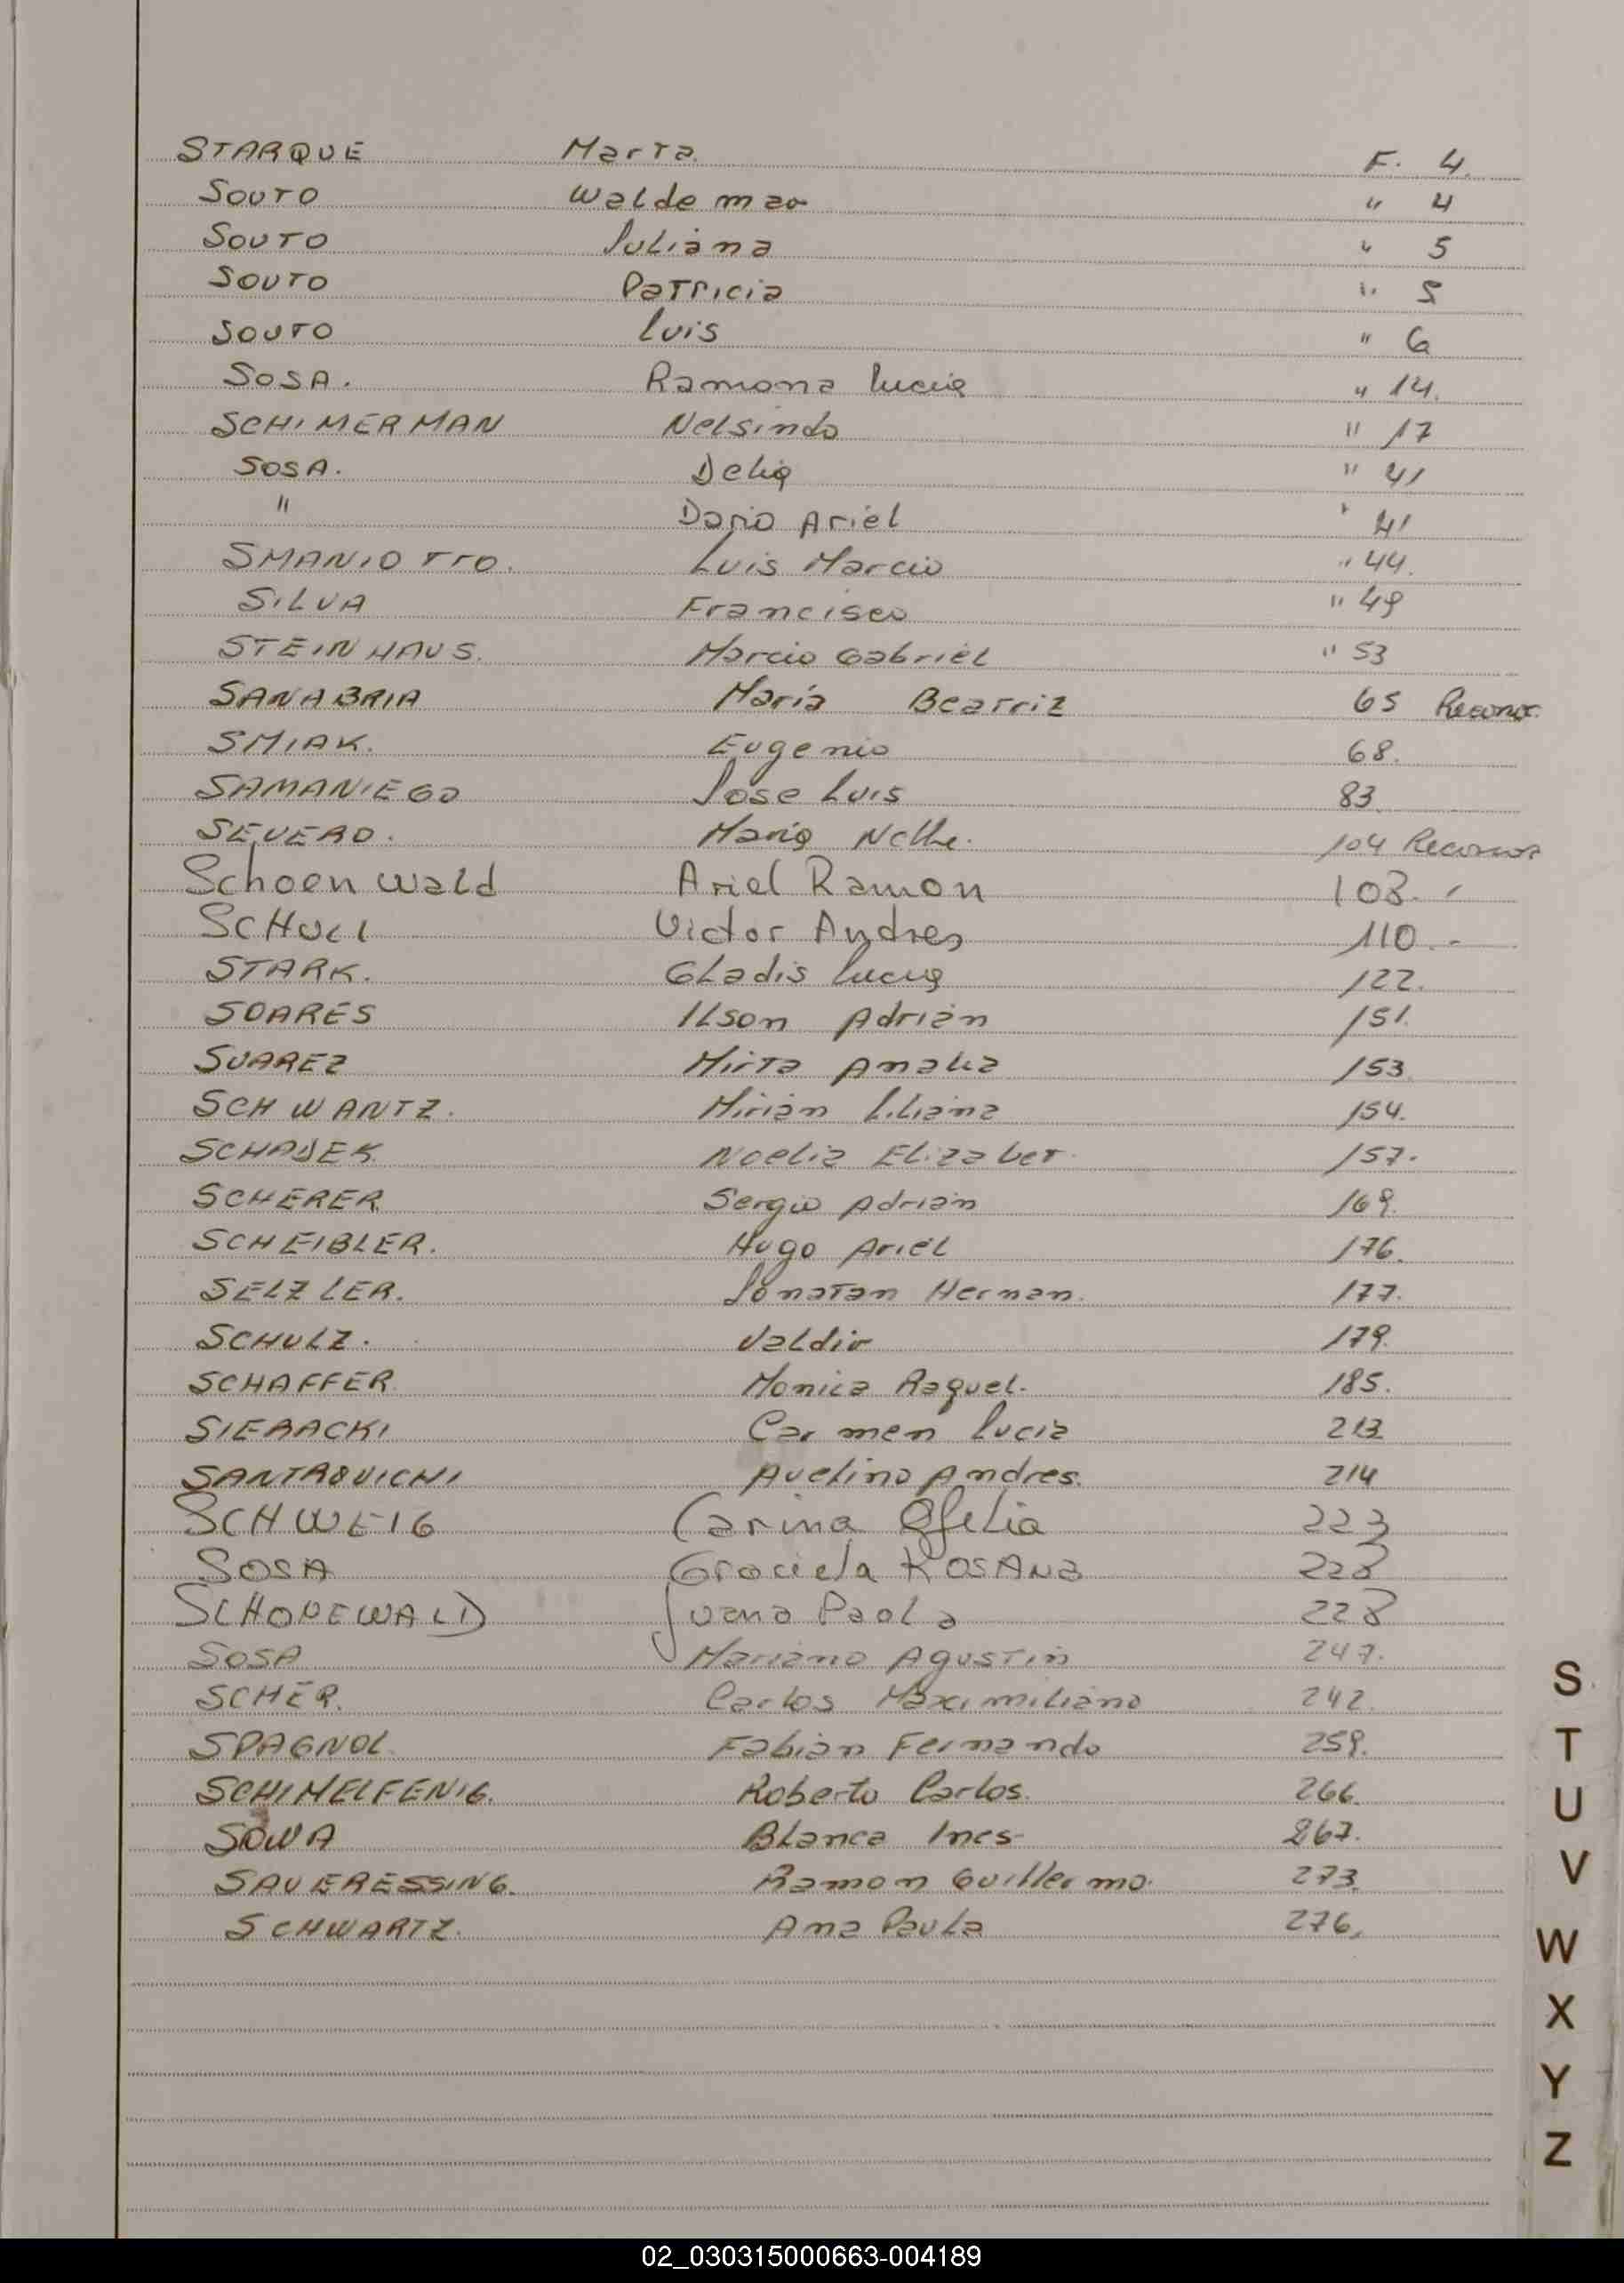 STARQUE Marta F. 4.
SOUTO Waldemar " 4
SOUTO Juliana " 5
SOUTO Patricia " 5
SOUTO Luis " 6
SOSA. Ramona Lucia " 14.
SCHIMERMAN Nelsindo " 17
SOSA. Delia " 41
" Dario Ariel " 41
SMANIOTTO. Luis Marcio " 44.
SILVA Francisco " 49
STEINHAUS. Marcio Gabriel " 53
SANABRIA María Beatriz 65 Reconoc.
SMIAK. Eugenio 68.
SAMANIEGO Jose Luis 83.
SEVERO. Maria 104
Schoenwald Ariel Ramon 108. -
SCHOLL Victor Andres 110. -
STARK. Gladis Lucia 122.
SOARES Ilson Adrián 151.
SUAREZ Mirta Amalia 153.
SCHWANTZ. Mirián Liliana 154.
Noelia Elizabet. 157.
SCHERER Sergio Adrián 169.
SCHEIBLER. Hugo Ariel 176.
SELZLER. Jonatan Hernan. 177.
SCHULZ. Valdir 179.
SCHAFFER Monica Raquel. 185.
SIERACKI Carmen Lucia 213
Avelino Andres. 214
SCHWEIG Carina Ofelia 223
SOSA Graciela ROSANa 228
SCHONEWALD Juana Paola 228
SOSA Mariano Agustín 247.
SCHER. Carlos Maximiliano 242.
SPAGNOL. Fabián Fernando 259.
SCHIMELFENIG. Roberto Carlos. 266.
SOWA Blanca Ines- 267.
SAUERESSING. Ramon Guillermo. 273.
SCHWARTZ. Ana Paula 276.
S
T
U
V
W
X
Y
Z
02_030315000663-004189